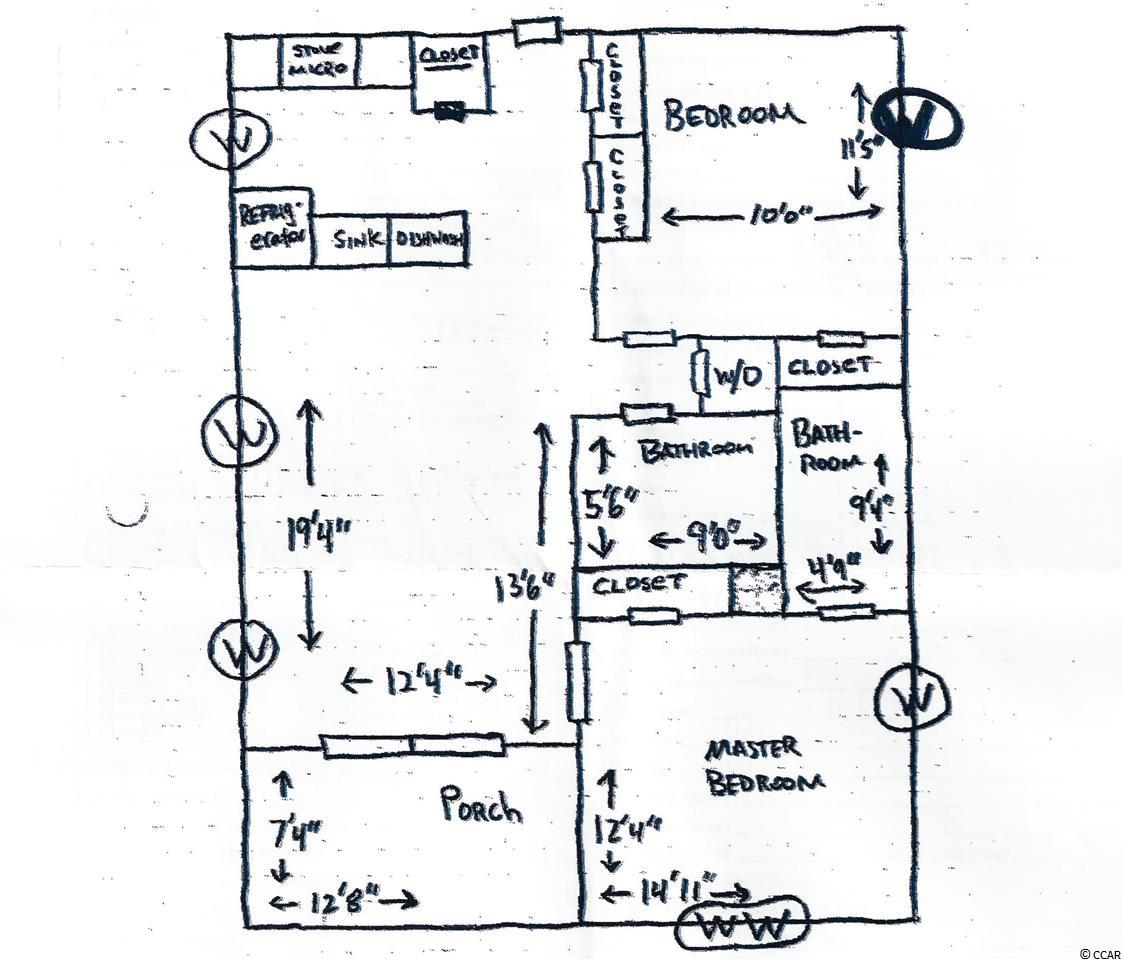 STOVE
MICRO
CLOSET
CLOSET
BEDROOM
W
W
11'5"
CLOSET
10'0"
REFRIG-
erator
SINK
DISHWASH
W/D
CLOSET
W
BATHROOM
BATH-
ROOM
5'6"
9'4"
19'4"
9'0"
13'6"
CLOSET
4'9"
W
12'4"
W
MASTER
BEDROOM
PORCH
7'4"
12'4"
12'8"
14'11"
W W
© CCAR